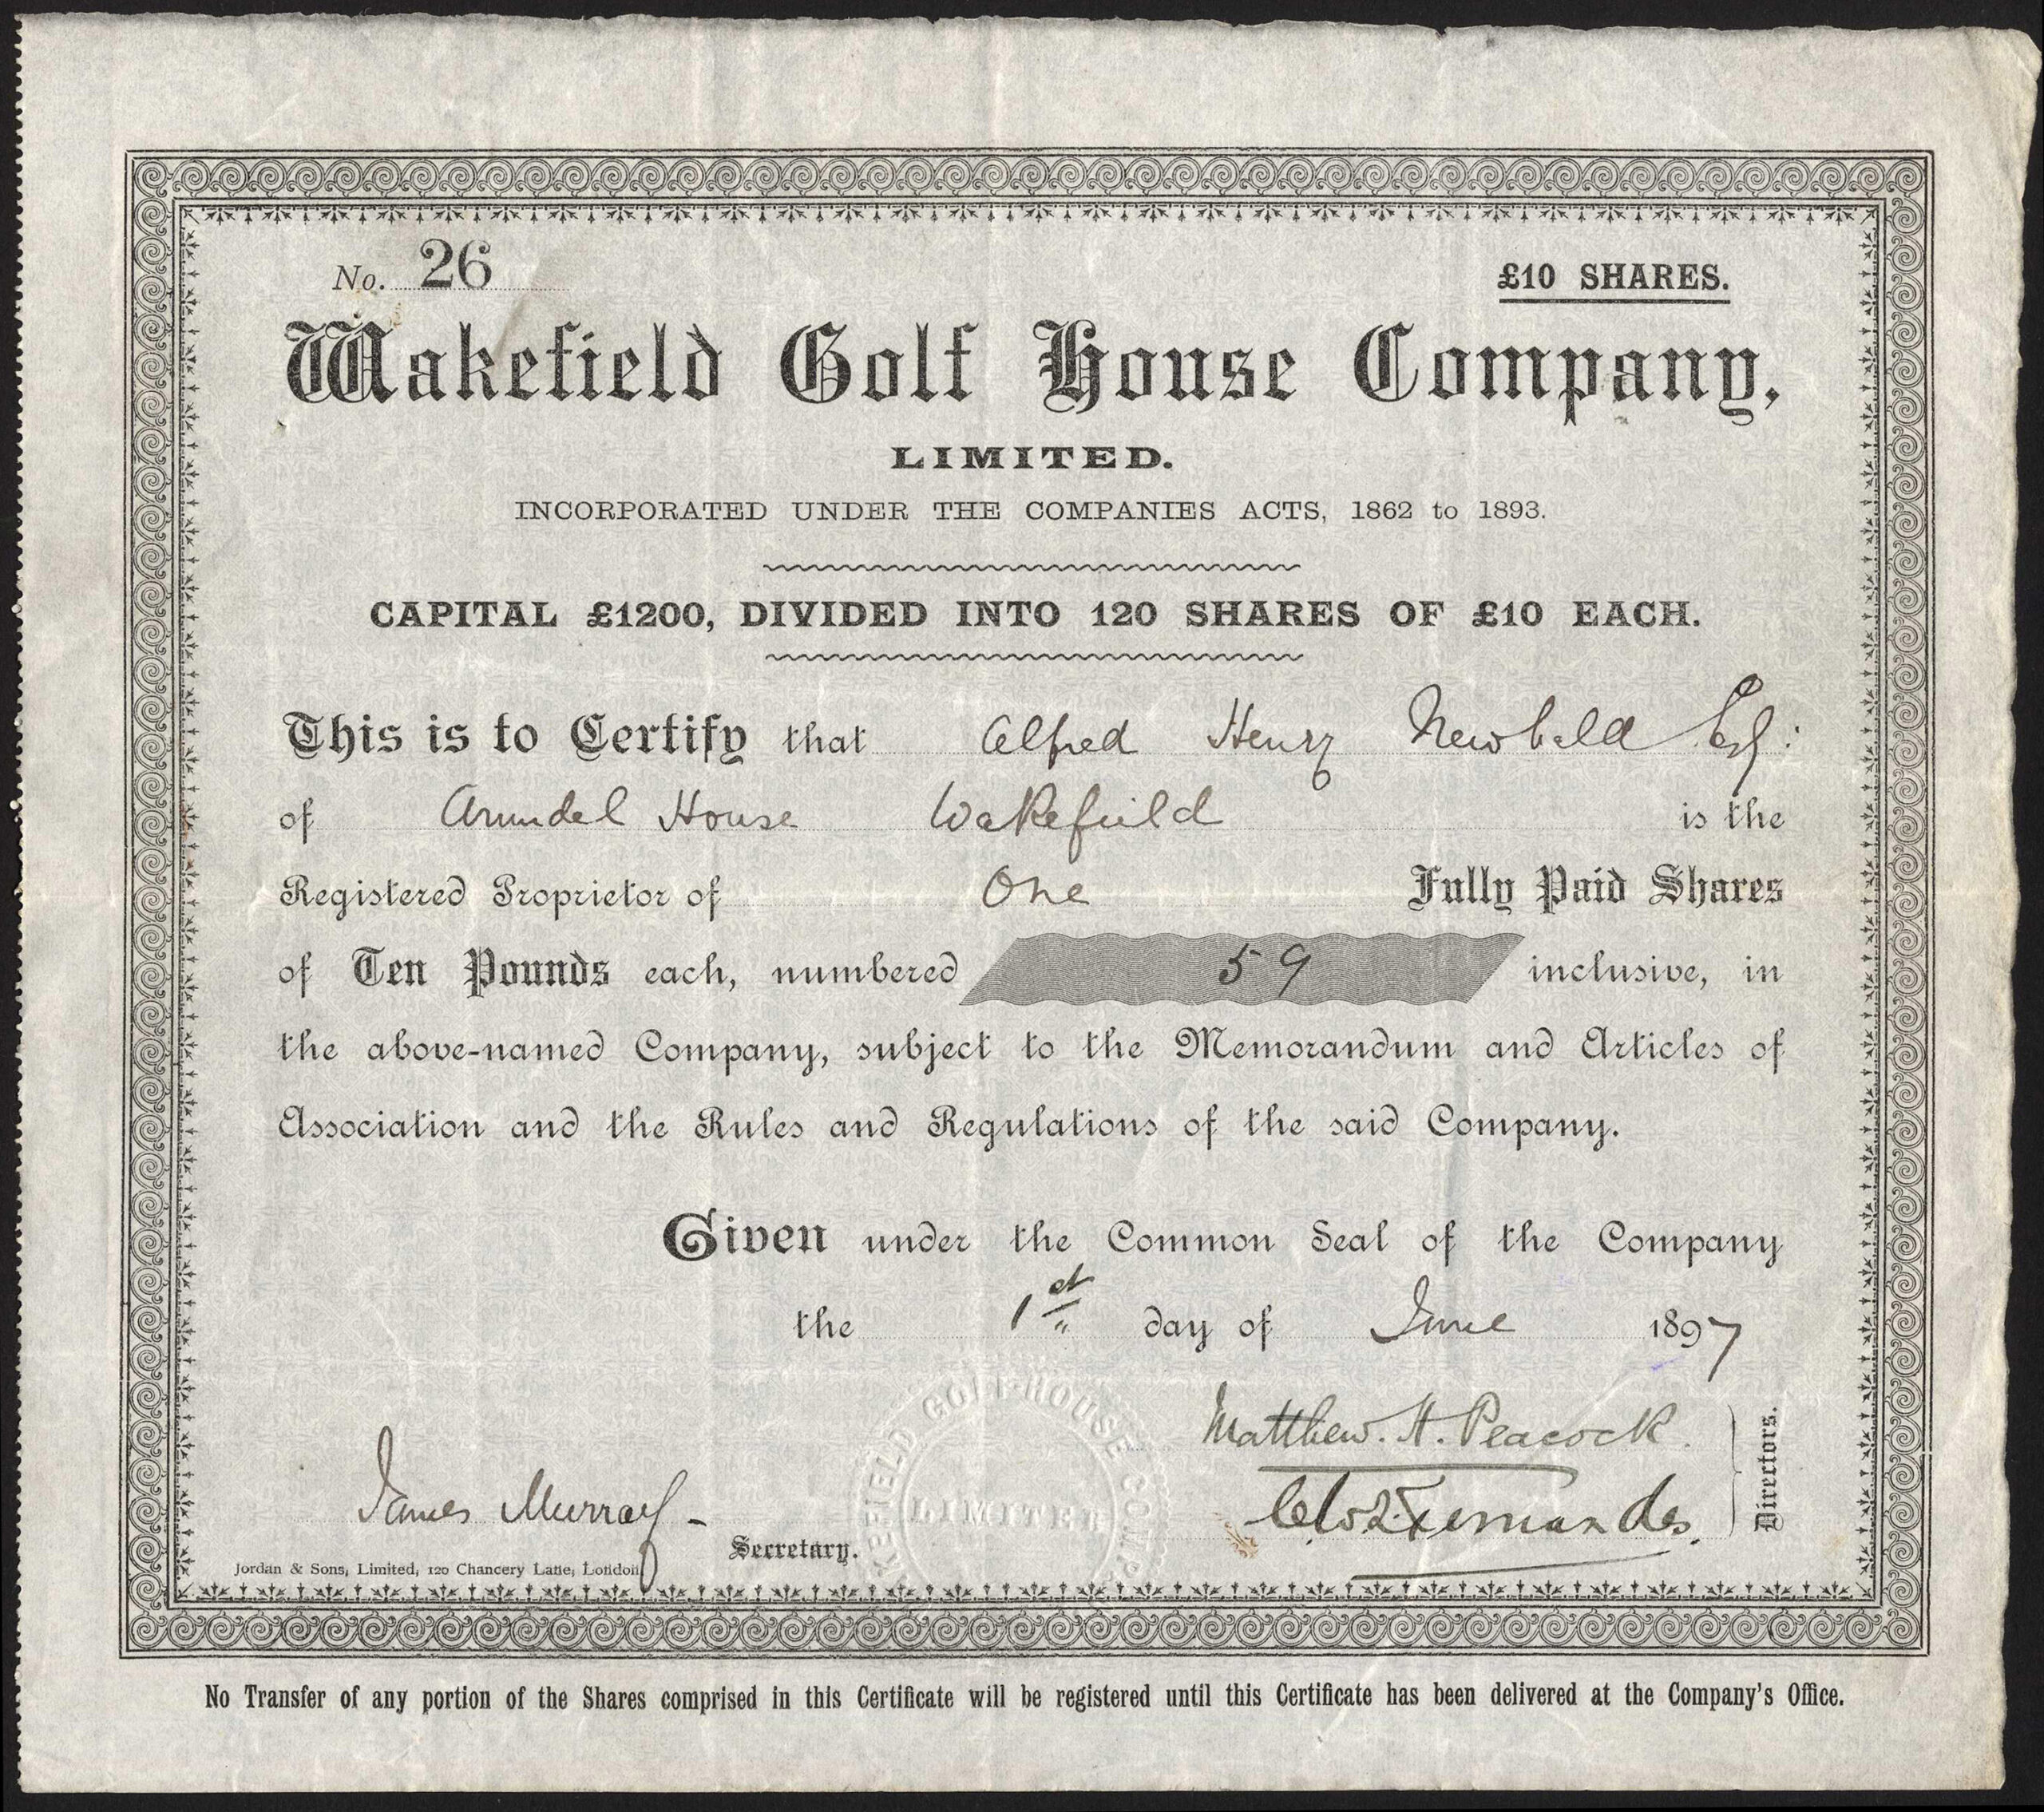 No. 26
£10 SHARES.
Wakefield Golf House Company,
LIMITED.
INCORPORATED UNDER THE COMPANIES ACTS, 1862 to 1893.
CAPITAL £1200, DIVIDED INTO 120 SHARES OF £10 EACH.
This is to Certify that Alfred Henry Newbald Esq:
of Arundel House Wakefield is the
Registered Proprietor of One Fully Paid Shares
of Ten Pounds each, numbered 59 inclusive, in
the above-named Company, subject to the Memorandum and Articles of
Association and the Rules and Regulations of the said Company.
Given under the Common Seal of the Company
the 1st day of June 1897
Matthew. H. Peacock.
Fernandes.
Directors.
James Murray
Secretary.
WAKEFIELD GOLF HOUSE COMPANY
LIMITED
Jordan & Sons, Limited, 120 Chancery Lane, London
No Transfer of any portion of the Shares comprised in this Certificate will be registered until this Certificate has been delivered at the Company's Office.